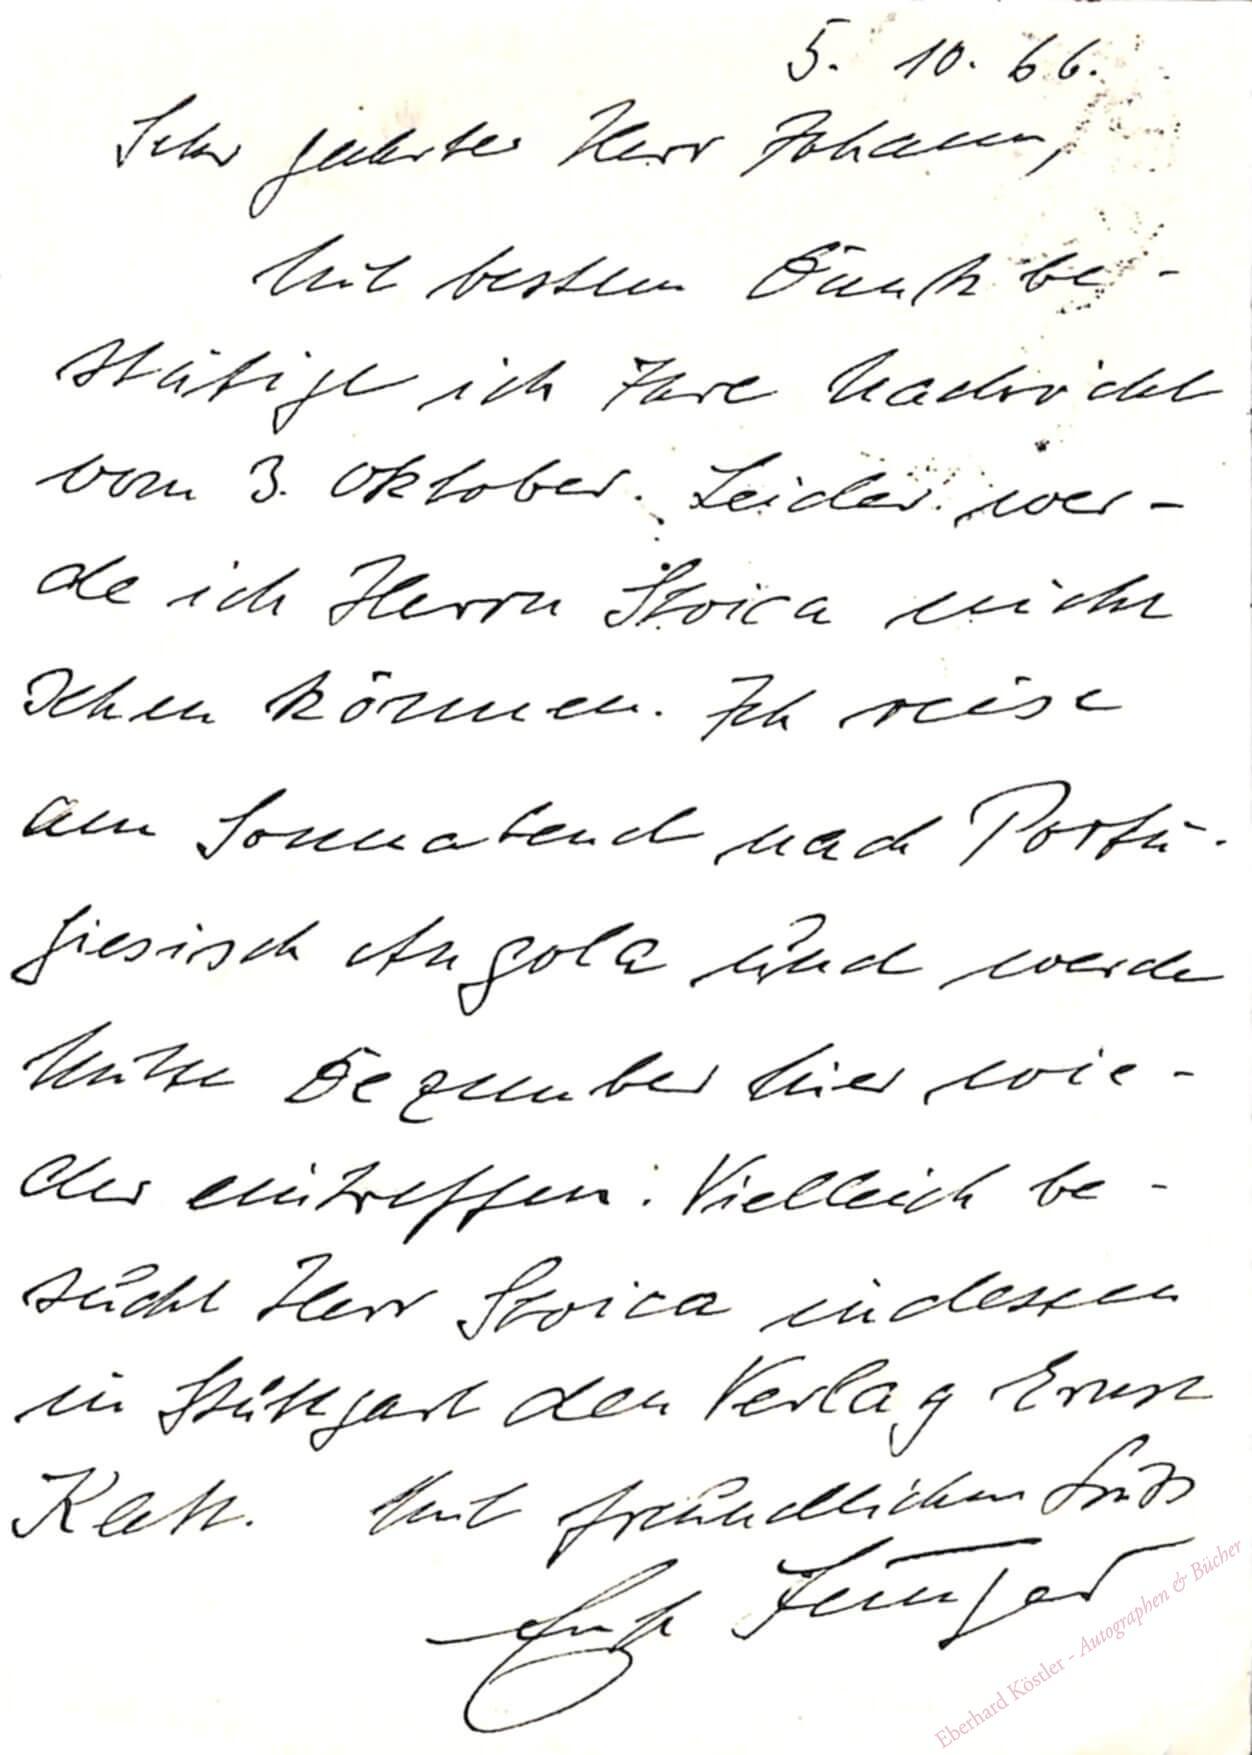 5. 10. 66.
Sehr geehrter Herr Johann,
Mit bestem Dank be-
stätige ich Ihre Nachricht
vom 3. Oktober. Leider wer-
de ich Herrn Stoica nicht
sehen können. Ich reise
am Sonnabend nach Portu-
giesisch Angola und werde
Mitte Dezember hier wie-
der eintreffen. Vielleich be-
sucht Herr Stoica indessen
in Stuttgart den Verlag Ernst
Klett. Mit freundlichem Gruß
Ernst Jünger
Eberhard Köstler - Autographen & Bücher